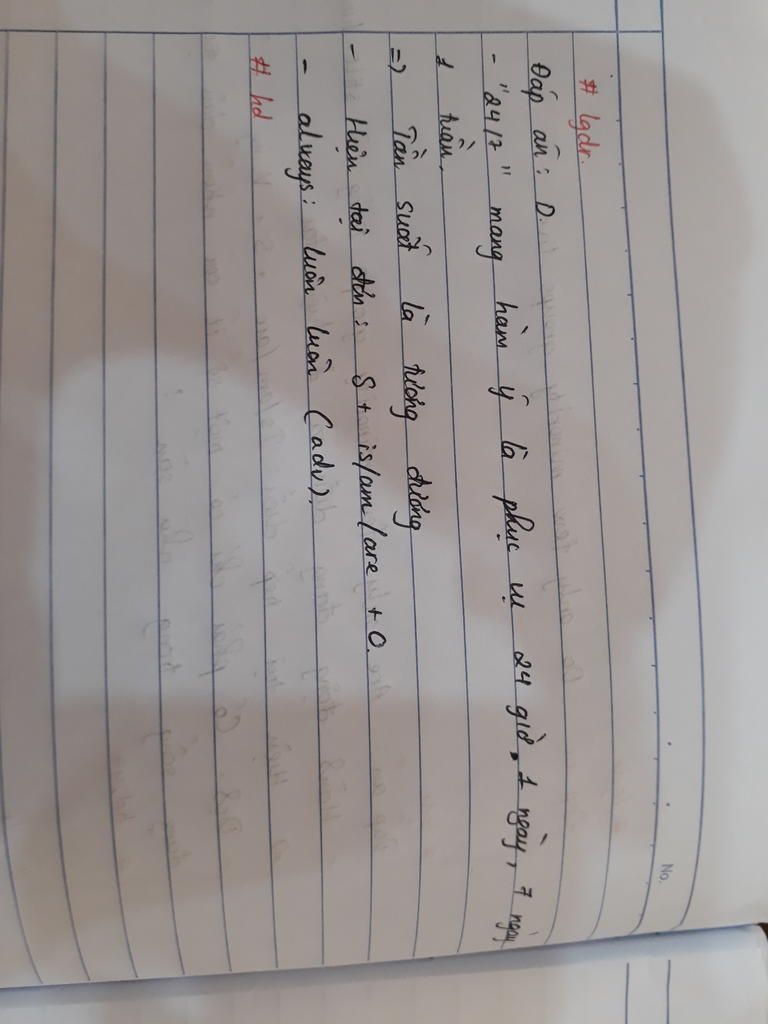 No.
# lgdr.
Đáp án: D.
- "24/7" mang hàm ý là phục vụ 24 giờ, 1 ngày, 7 ngày
1 tuần,
=> Tần suất là tương đương
- Hiện tại đơn: S + is/am/are + O.
- always: luôn luôn (adv).
# hd